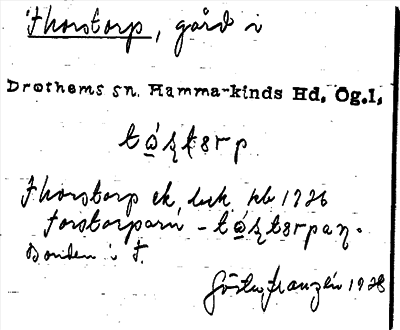 Thorstorp, gård i
Drothems sn. Hamma-kinds Hd, Ög.l,
tó̲ʂʈɜrp
Thorstorp ek, kb 1726
torstorparn - tó̲ʂtɜrpaɳ.
Bonden i T.
Gösta Franzén 1928